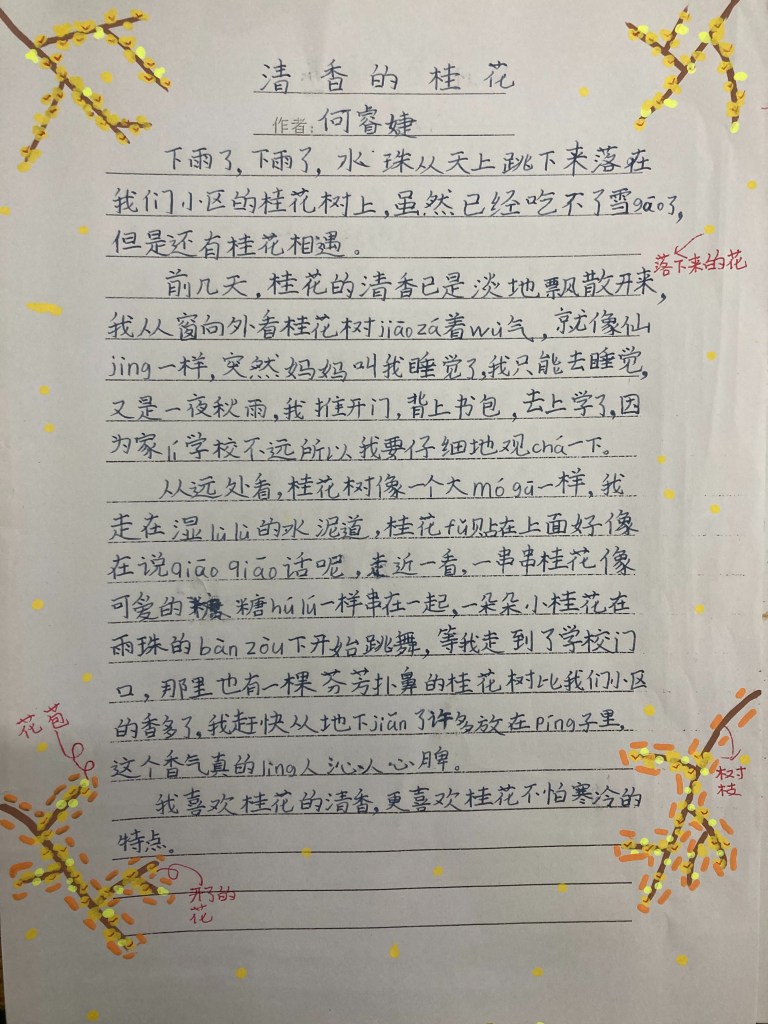 清香的桂花
作者:何睿婕
下雨了,下雨了,水珠从天上跳下来落在
我们小区的桂花树上,虽然已经吃不了雪gāo了,
但是还有桂花相遇。
落下来的花
前几天,桂花的清香已是淡地飘散开来,
我从窗向外看桂花树jiāo zá着wù气,就像仙
jìng一样,突然妈妈叫我睡觉了,我只能去睡觉,
又是一夜秋雨,我推开门,背上书包,去上学了,因
为家lí学校不远所以我要仔细地观chá一下。
从远处看,桂花树像一个大mó gū一样,我
走在湿lùlù的水泥道,桂花fǔ贴在上面好像
在说qiāo qiāo话呢,走近一看,一串串桂花像
可爱的糖糖húlú一样串在一起,一朵朵小桂花在
雨珠的bàn zòu下开始跳舞,等我走到了学校门
口,那里也有一棵芬芳扑鼻的桂花树比我们小区
的香多了,我赶快从地下jiǎn了许多放在píng子里,
这个香气真的lìng人沁人心脾。
我喜欢桂花的清香,更喜欢桂花不怕寒冷的
特点。
花苞
树枝
开了的
花